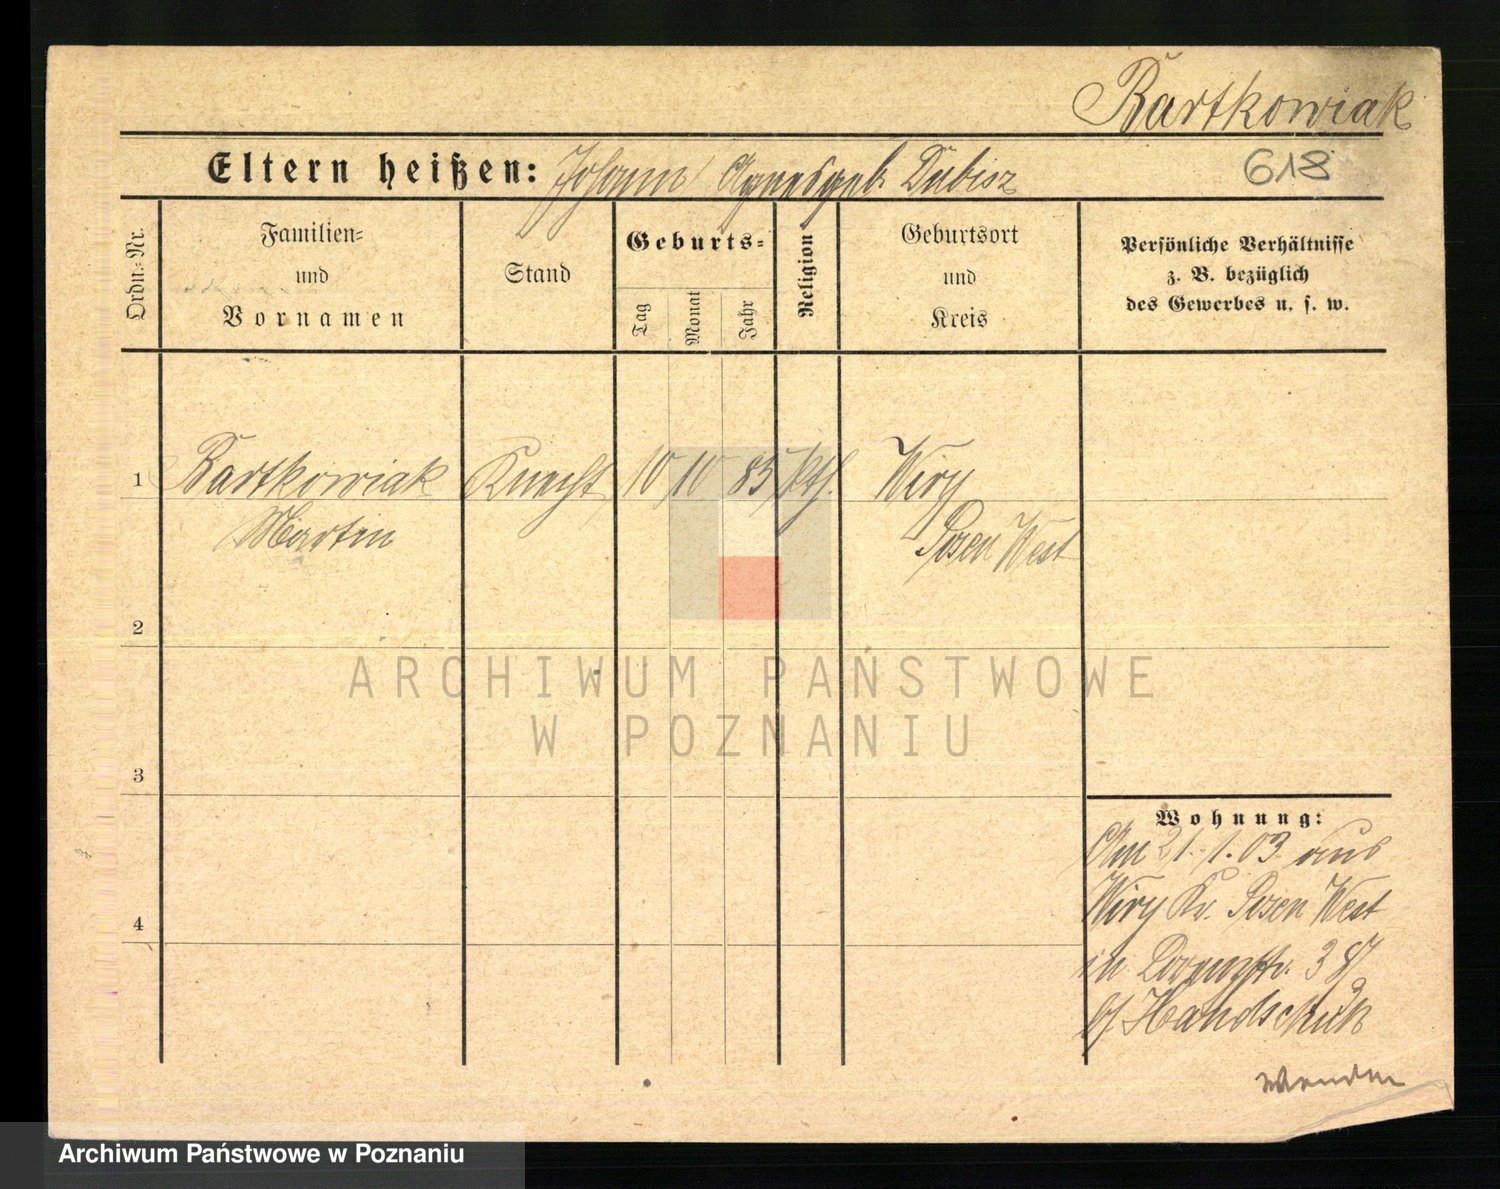 Bartkowiak
618
Eltern heißen: Johann Agnes geb. Dubisz
Ordn.-Nr.
Familien-
und
Vornamen
Stand
Geburts-
Tag
Monat
Jahr
Religion
Geburtsort
und
Kreis
Persönliche Verhältnisse
z. B. bezüglich
des Gewerbes u. s. w.
1 Bartkowiak Knecht 10 10 85 kth. Wiry
Martin Posen West
2
3
4
Wohnung:
Am 21.1.03 aus
Wiry Kr. Posen West
in 38
bei Handschuh
wenden
ARCHIWUM PAŃSTWOWE
W POZNANIU
Archiwum Państwowe w Poznaniu